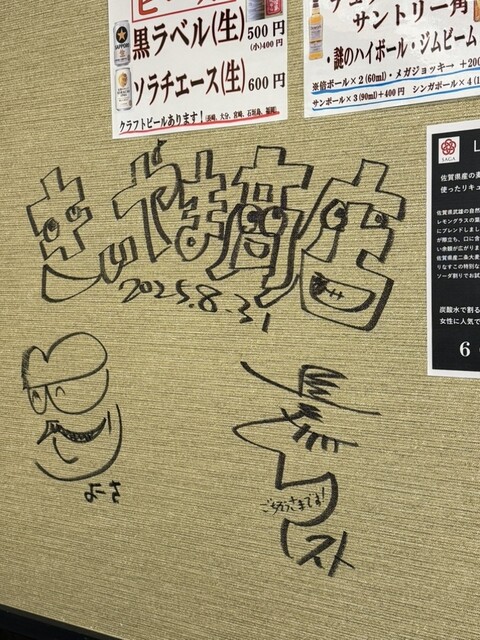 黒ラベル(生) 500円
(小)400円
ソラチエース(生) 600円
クラフトビールあります!(長崎、大分、宮崎、石垣島、福岡)
サントリー角
・謎のハイボール・ジムビーム
※倍ボール×2(60ml)・メガジョッキ→+200
サンボール×3(90ml)+400円 シンガポール×4(1
SAGA
佐賀県産の
使ったリキュ
佐賀県武雄の自然
レモングラスの葉
にブレンドしまし
が際立ち、口に含
い余韻が広がりま
佐賀県産二条大麦
りなすこの特別な
ソーダ割りでお試
炭酸水で割る
女性に人気で
6
きじやま商店
2025.8.31
ごちそうさまです!